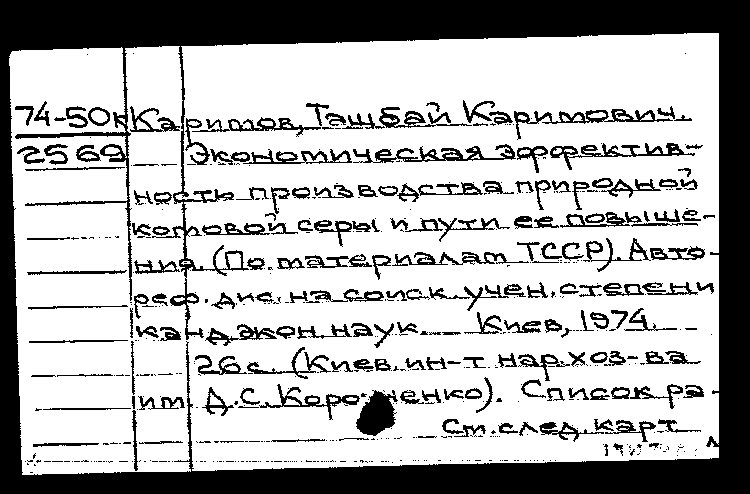 74-50к Каримов, Ташбай Каримович.
2569 Экономическая эффектив-
ность производства природной
комовой серы и пути ее повыше-
ния. (По материалам ТССР). Авто-
реф. дис. на соиск. учен. степени
канд. экон. наук. Киев, 1974.
26 с. (Киев. ин-т нар. хоз-ва
им. Д.С. Коротченко). Список ра-
См. след. карт